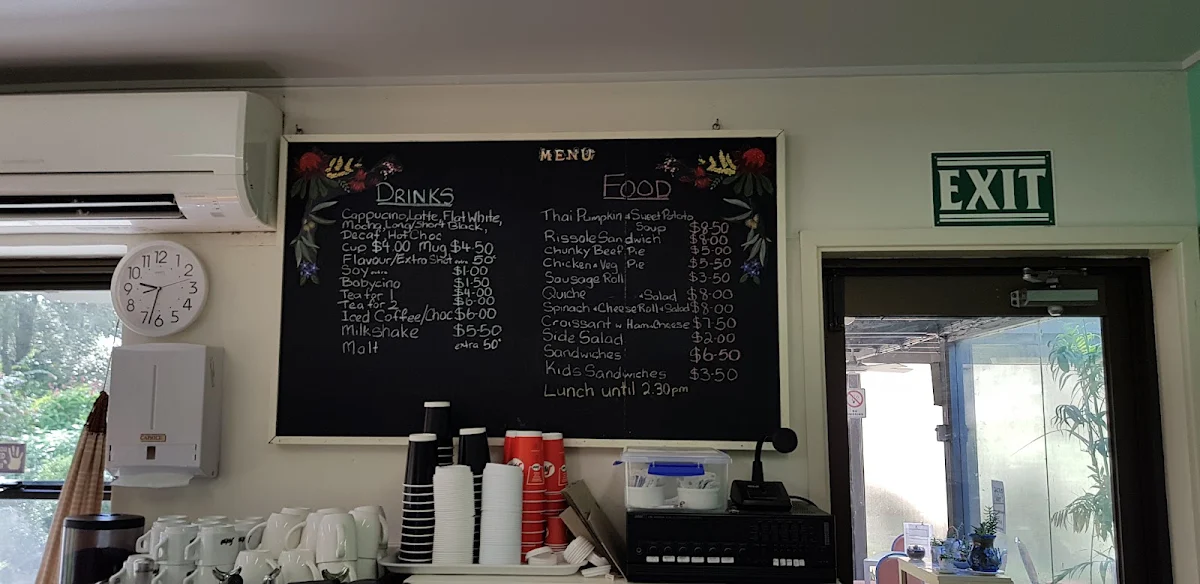 MENU
DRINKS
Cappucino, Latte, Flat White,
Mocha, Long/Short Black,
Decaf, Hot Choc
Cup $4.00 Mug $4.50
Flavour/Extra Shot 50¢
Soy $1.00
Babycino $1.50
Tea for 1 $4.00
Tea for 2 $6.00
Iced Coffee/Choc $6.00
Milkshake $5.50
Malt extra 50¢
FOOD
Thai Pumpkin & Sweet Potato
Soup $8.50
Rissole Sandwich $8.00
Chunky Beef Pie $5.00
Chicken & Veg Pie $5.50
Sausage Roll $3.50
Quiche & Salad $8.00
Spinach & Cheese Roll & Salad $8.00
Croissant w Ham & Cheese $7.50
Side Salad $2.00
Sandwiches $6.50
Kids Sandwiches $3.50
Lunch until 2.30pm
EXIT
12
1
2
3
4
5
6
7
8
9
10
11